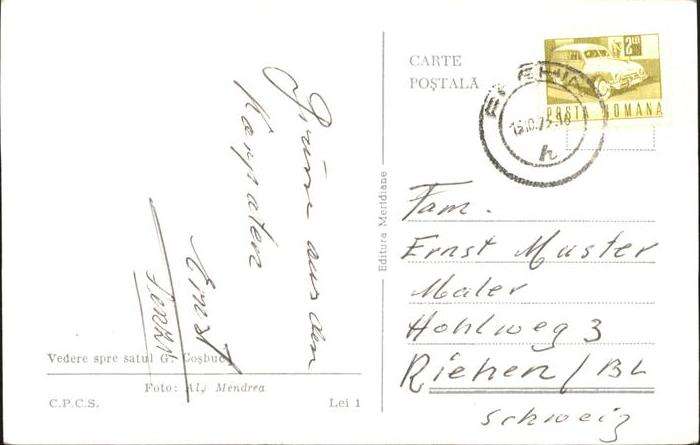 CARTE
POȘTALĂ
2 LEI
POSTA ROMANA
h
Editura Meridiane
Grüsse aus den
Karpaten
Ernst
Fam.
Ernst Muster
Maler
Hohlweg 3
Riehen / BL
Schweiz
Vedere spre satul G. Coșbuc
Foto: Al. Mendrea
C.P.C.S.
Lei 1